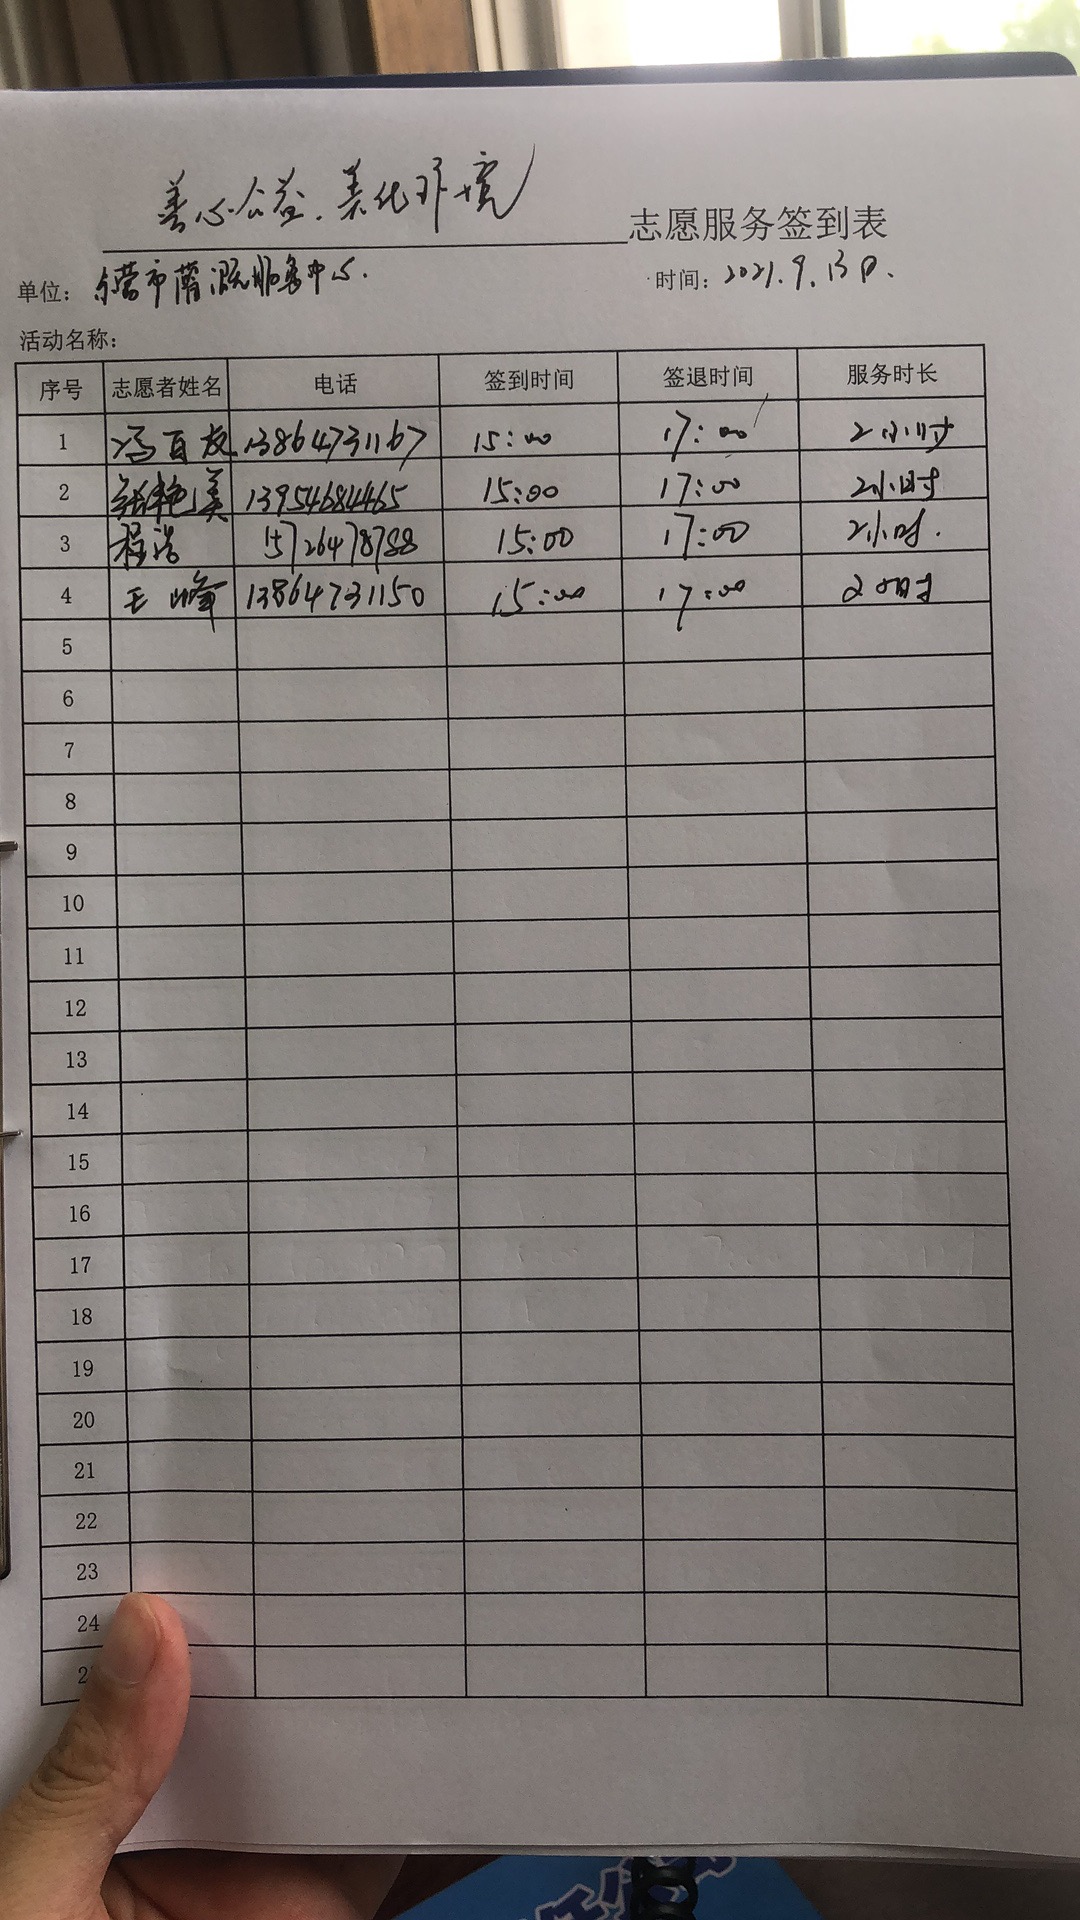 善心公益.美化环境 志愿服务签到表
单位: 东营市 服务中心. 时间: 2021.9.13日.
活动名称:
序号 志愿者姓名 电话 签到时间 签退时间 服务时长
1 冯百友 13864731167 15:00 17:00 2小时
2 张艳美 13954684465 15:00 17:00 2小时
3 程浩 15726478788 15:00 17:00 2小时.
4 王峰 13864731150 15:00 17:00 2小时
5
6
7
8
9
10
11
12
13
14
15
16
17
18
19
20
21
22
23
24